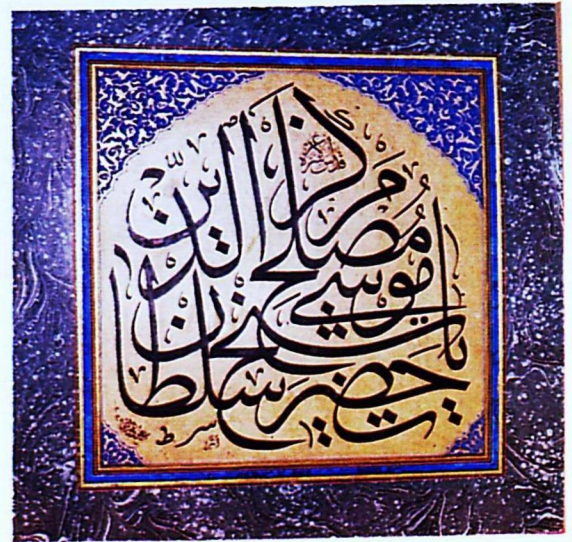 يا حضرت سلطان
شيخ موسى
مصلح الدين
مركز